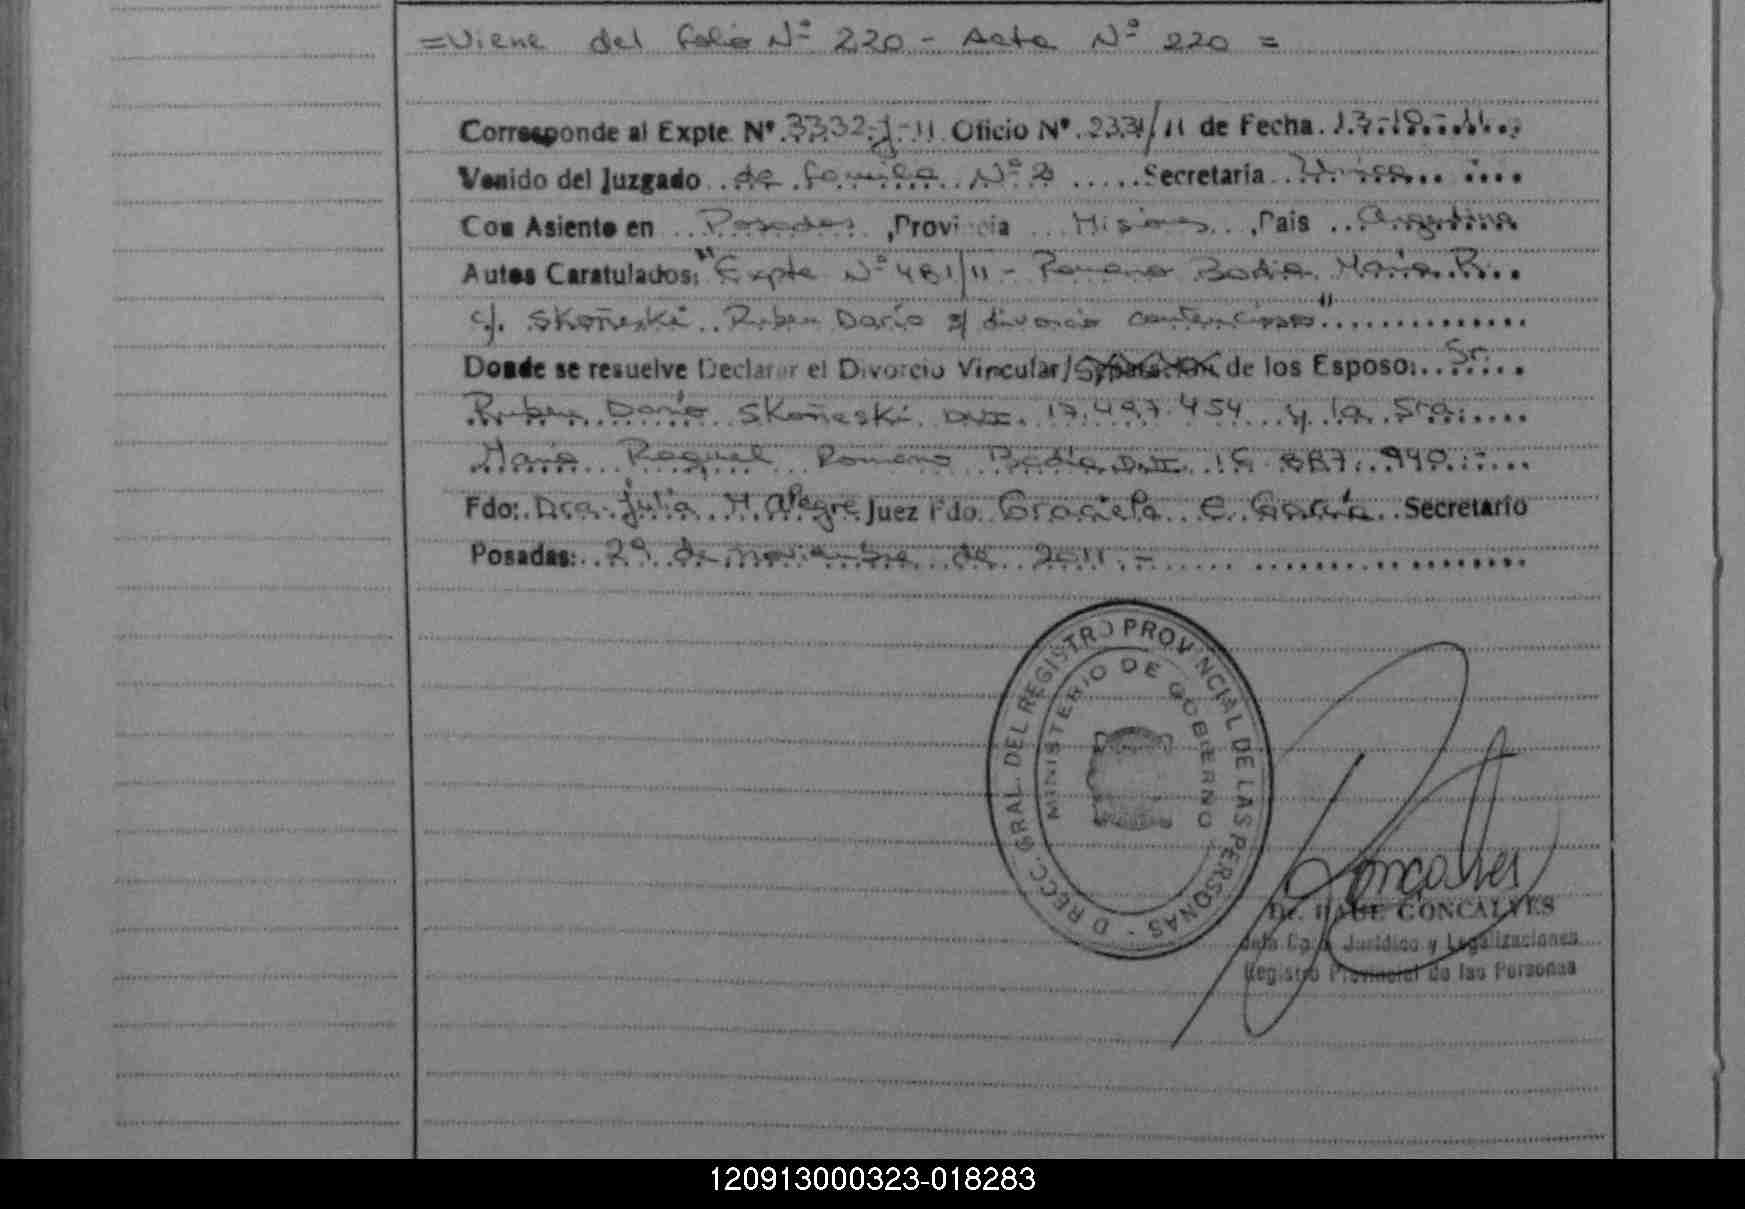 =Viene del folio Nº 220 - Acta Nº 220 =
Corresponde al Expte. Nº. 3332-J-11 Oficio Nº. 2331/11 de Fecha. 13-10-11
Venido del Juzgado de familia Nº 2 Secretaria Unica
Con Asiento en Posadas, Provincia Misiones, País Argentina
Autos Caratulados: "Expte Nº 481/11 - Romero Bodia María R.
c/. Skoñeski Ruben Darío s/ divorcio contencioso"
Donde se resuelve Declarar el Divorcio Vincular/ de los Esposo: Sr.
Ruben Darío Skoñeski DNI. 17.497.454 y la Sra.
María Raquel DNI
Fdo: Dra. Julia H. Alegre Juez Fdo. Graciela C. Secretario
Posadas: 29 de noviembre de 2011.-
DIRECC. GRAL. DEL REGISTRO PROVINCIAL DE LAS PERSONAS -
MINISTERIO DE GOBIERNO
Goncalves
GONCALVES
Jurídico y Legalizaciones
Registro Provincial de las Personas
120913000323-018283